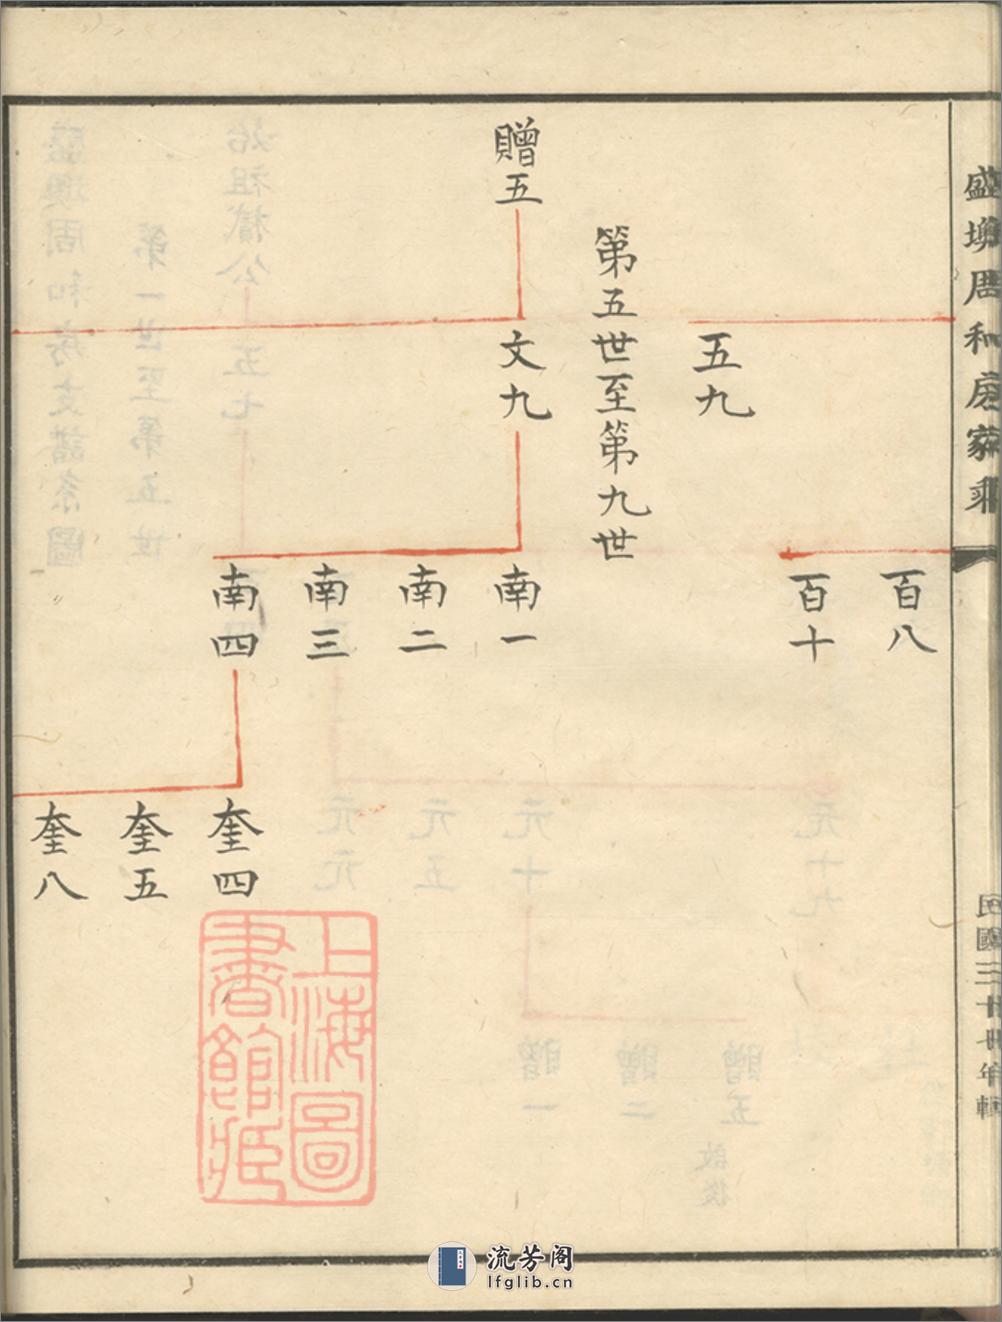 盛墺周和房家乘
民國三十七年輯
百八
百十
五九
第五世至第九世
贈五
文九
南一
南二
南三
南四
奎四
奎五
奎八
上海圖書館藏
流芳阁
lfglib.cn